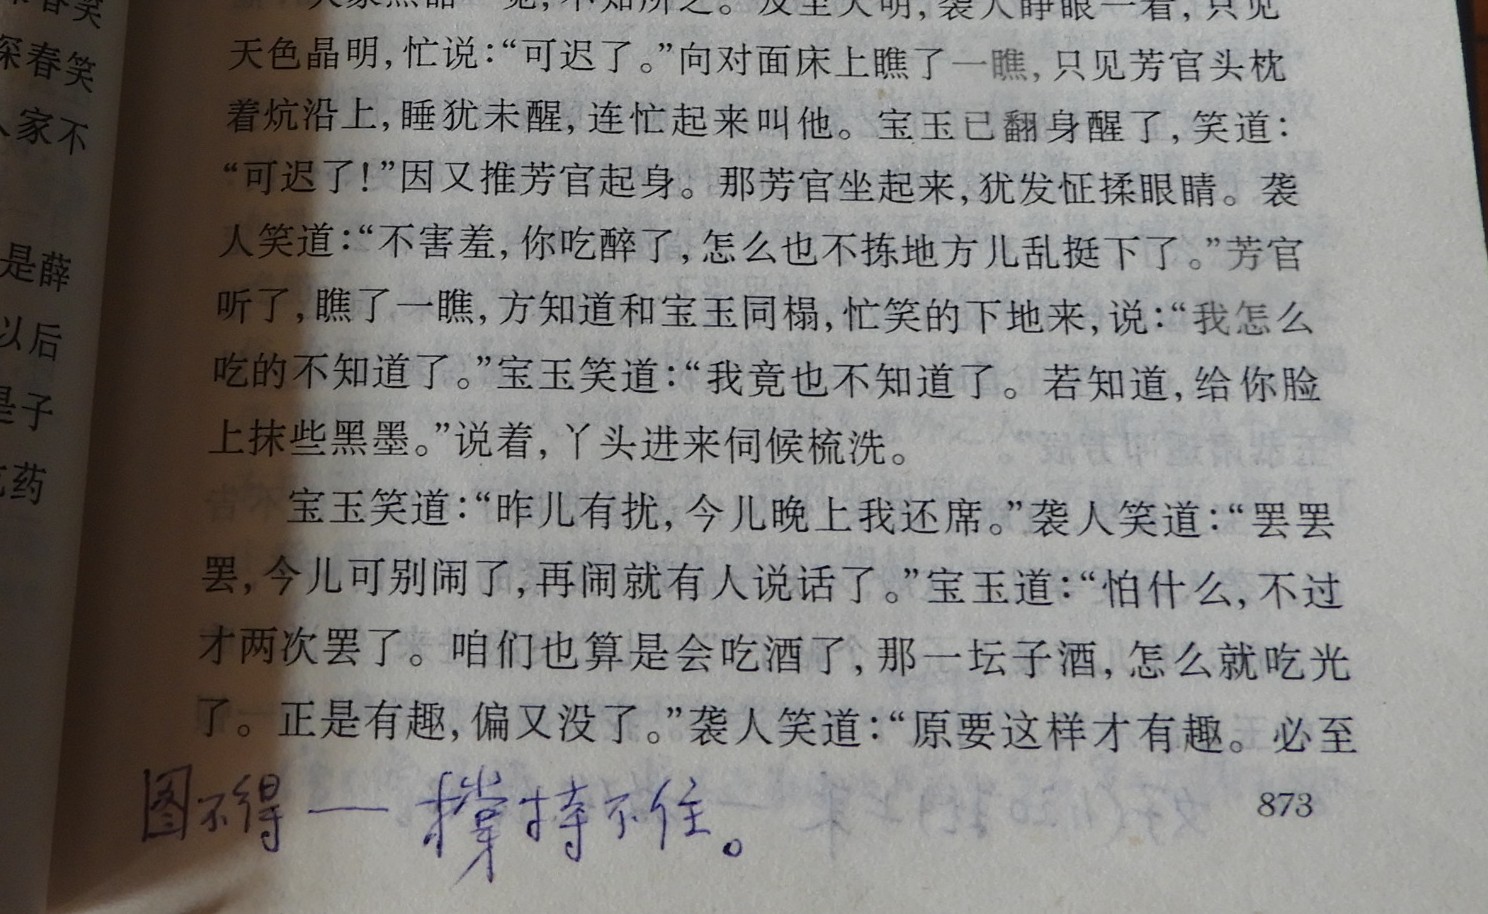 春笑
探春笑
人家不
是薛
以后
是子
药
大家黑甜一觉，不知所之。及至天明，袭人睁眼一看，只见
天色晶明，忙说：“可迟了。”向对面床上瞧了一瞧，只见芳官头枕
着炕沿上，睡犹未醒，连忙起来叫他。宝玉已翻身醒了，笑道：
“可迟了！”因又推芳官起身。那芳官坐起来，犹发怔揉眼睛。袭
人笑道：“不害羞，你吃醉了，怎么也不拣地方儿乱挺下了。”芳官
听了，瞧了一瞧，方知道和宝玉同榻，忙笑的下地来，说：“我怎么
吃的不知道了。”宝玉笑道：“我竟也不知道了。若知道，给你脸
上抹些黑墨。”说着，丫头进来伺候梳洗。
宝玉笑道：“昨儿有扰，今儿晚上我还席。”袭人笑道：“罢罢
罢，今儿可别闹了，再闹就有人说话了。”宝玉道：“怕什么，不过
才两次罢了。咱们也算是会吃酒了，那一坛子酒，怎么就吃光
了。正是有趣，偏又没了。”袭人笑道：“原要这样才有趣。必至
图不得——撑持不住。
873